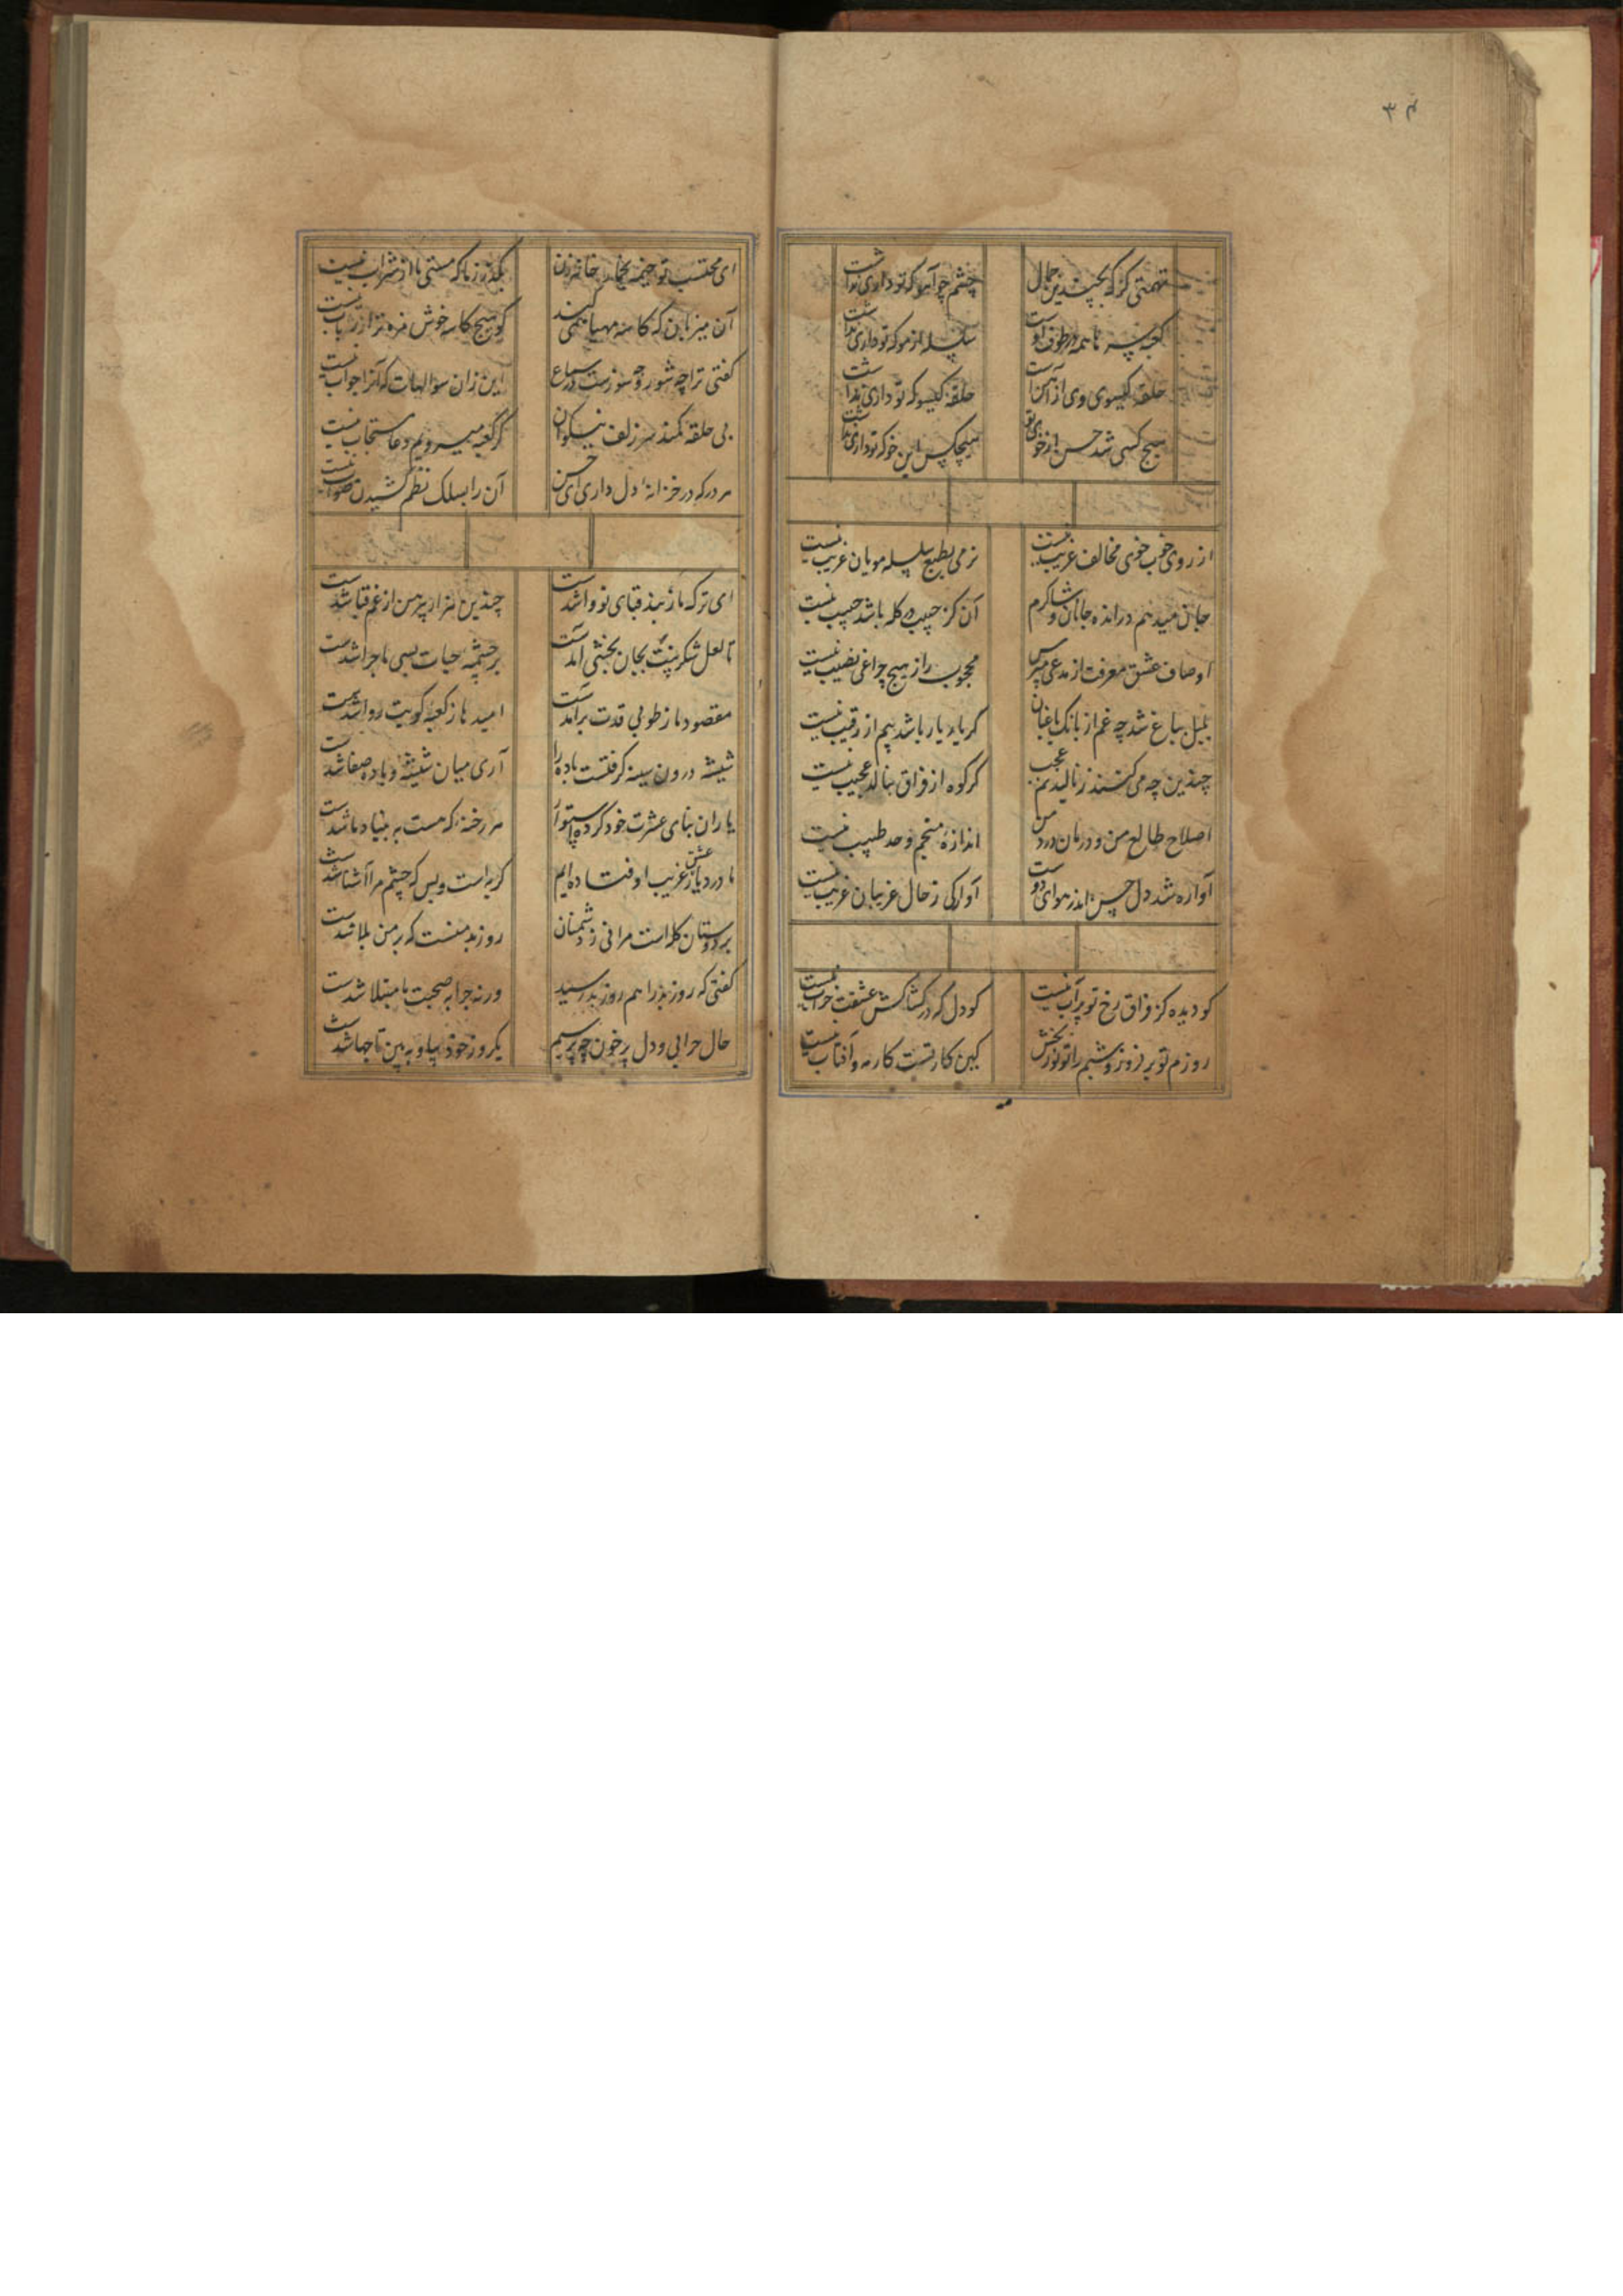 ۳۴
تهمتی کز که بچندین جمال
چشم چو آهو که تو داری نداشت
کعبه بسر ما همه در طوف اوست
سلسله از مو که تو داری نداشت
حلقه گیسوی وی از آهن است
حلقه گیسو که تو داری نداشت
هیچ کسی شد حسن از خوی تو
هیچکس این خو که تو داری نداشت
از روی خوب خوی مخالف غریب نیست
نرمی بطبع سلسله مویان غریب نیست
جان میدهم در انده جانان و شاکرم
آن کز حبیب در گله باشد حبیب نیست
اوصاف عشق و معرفت از مدعی مپرس
محجوب را ز هیچ چراغی نصیب نیست
بلبل بباغ شد چه غم از بانک باغبان
کر یاد یار باشد بیم از رقیب نیست
چندین چه می کنند ز نالیدنم عجب
کر کوه از فراق بنالد عجیب نیست
اصلاح طالع من و درمان درد من
اندازه منجم و حد طبیب نیست
آواره شد دل حسن اندر هوای دوست
آوارکی ز حال غریبان غریب نیست
کو دیده کز فراق رخ تو پر آب نیست
کو دل که در کشاکش عشقت خراب نیست
روزم تو بر فروز و شبم را تو نور بخش
کین کار تست کار مه و آفتاب نیست
ای محتسب تو خیمه بخمار خانه زن
بگذر ز ما که مستی ما از شراب نیست
آن میزبان که کاسه مهیا همی کند
کو هیچ کاسه خوش مزه تر از رباب نیست
کفتی ترا چه شور و چه سوزست در سماع
این زان سوالهات که آنرا جواب نیست
بی حلقه کمند سر زلف نیکوان
کر کعبه میرویم دعا مستجاب نیست
هر در که در خزانه دل داری ای حسن
آن را بسلک نظم کشیدن صواب نیست
ای ترک باز بند قبای تو وا شدست
چندین هزار پیرهن از غم قبا شدست
تا لعل شکرینت بجان بخشی آمدست
بر چشمه حیات بسی ماجرا شدست
مقصود ما ز طوبی قدت برآمدست
امید ما ز کعبه کویت روا شدست
شیشه درون سینه کرفتست باده را
آری میان شیشه و باده صفا شدست
یاران بنای عشرت خود کرده استوار
هر رخنه که هست به بنیاد ما شدست
ما در دیار عشق غریب اوفتاده ایم
کریه است و بس که چشم مرا آشنا شدست
بر دوستان کله است مرا نی ز دشمنان
روز بد منست که بر من بلا شدست
کفتی که روز بد را هم روز بد رسید
ورنه چرا به صحبت ما مبتلا شدست
حال خرابی و دل پر خون چو پرسیم
یکروز خود بیا و به بین تا چها شدست